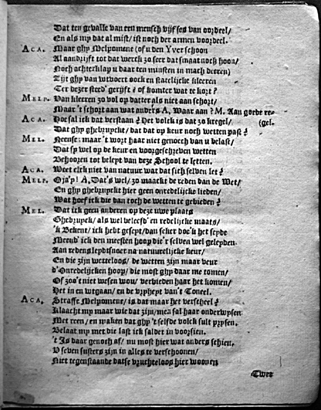 Dat ten gevalle van een mensch vijf ses van oordeel/
En als my dat al mist/ is noch der armen voordeel.
ACA. Maar ghy Melpomene (of u den Yver schoon
Al aandrijft tot dat werck zo seer dat smaat noch hoon/
Noch achterklap u daar ten minsten in mach deeren)
Tijt ghy van witwerck sock en staetelicke kleeren
Ter deser stede gerijft? of komter wat te kort?
MELP. Van kleeren zo vol op datter als niet aan schort/
Maar 't schort aan wat anders A. Waar aan? M. Aan goede re-
ACA. Hoe sal ick dat verstaan? Het volck is dat zo kregel/ (gel.
Dat ghy ghebruyckt/ dat dat op keur noch wetten past?
MEL. Neense: maar 't wort haar niet genoech van u belast/
Dat sy wel op de keur en voorgeschreven wetten
Behooren tot beleyt van dese School te letten.
ACA. Wiet elck niet van natuur wat dat sich selven let?
MELP. Oja's! A. Dat's wel/ zo maackt de reden dan de Wet/
En ghy ghebruyckt hier geen onredelicke lieden/
Wat hoef ick die dan toch de wetten te gebieden?
MEL. Dat ick geen anderen op dese uwe plaats
Ghebruyck/ als wel beleefd' en redelijcke maats/
'k Bekent/ ick hebt geseyt/ dan seker doe 'k het spade
Meend' ick den meesten hoop die 't selven wel geleyden
Aan redens leydtsnoer na natuurelijcke keur/
En die zijn wetteloos/ de wetten zijn maar veur
d'Ontredelijcken hoop/ die most ghy daar me tomen/
Of zoo 't niet wesen wou/ verbieden haar het komen/
Het in en uytgaan/ en de vryheyt van 't Toneel.
ACA. Straffe Melpomene/ is dat maar het verscheel?
Klaacht my maar wie dat zijn/ men sal haar onderwysen
Met reen/ en maken dat ghy 't selfde volck sult prysen.
Belast my met die last ick salder in voorsien.
't Is daar genoch af/ nu most hier wat anders schien.
U seven susters zijn in alles te verschoonen/
Niet tegenstaande datse vruchteloos hier woonen
Twee